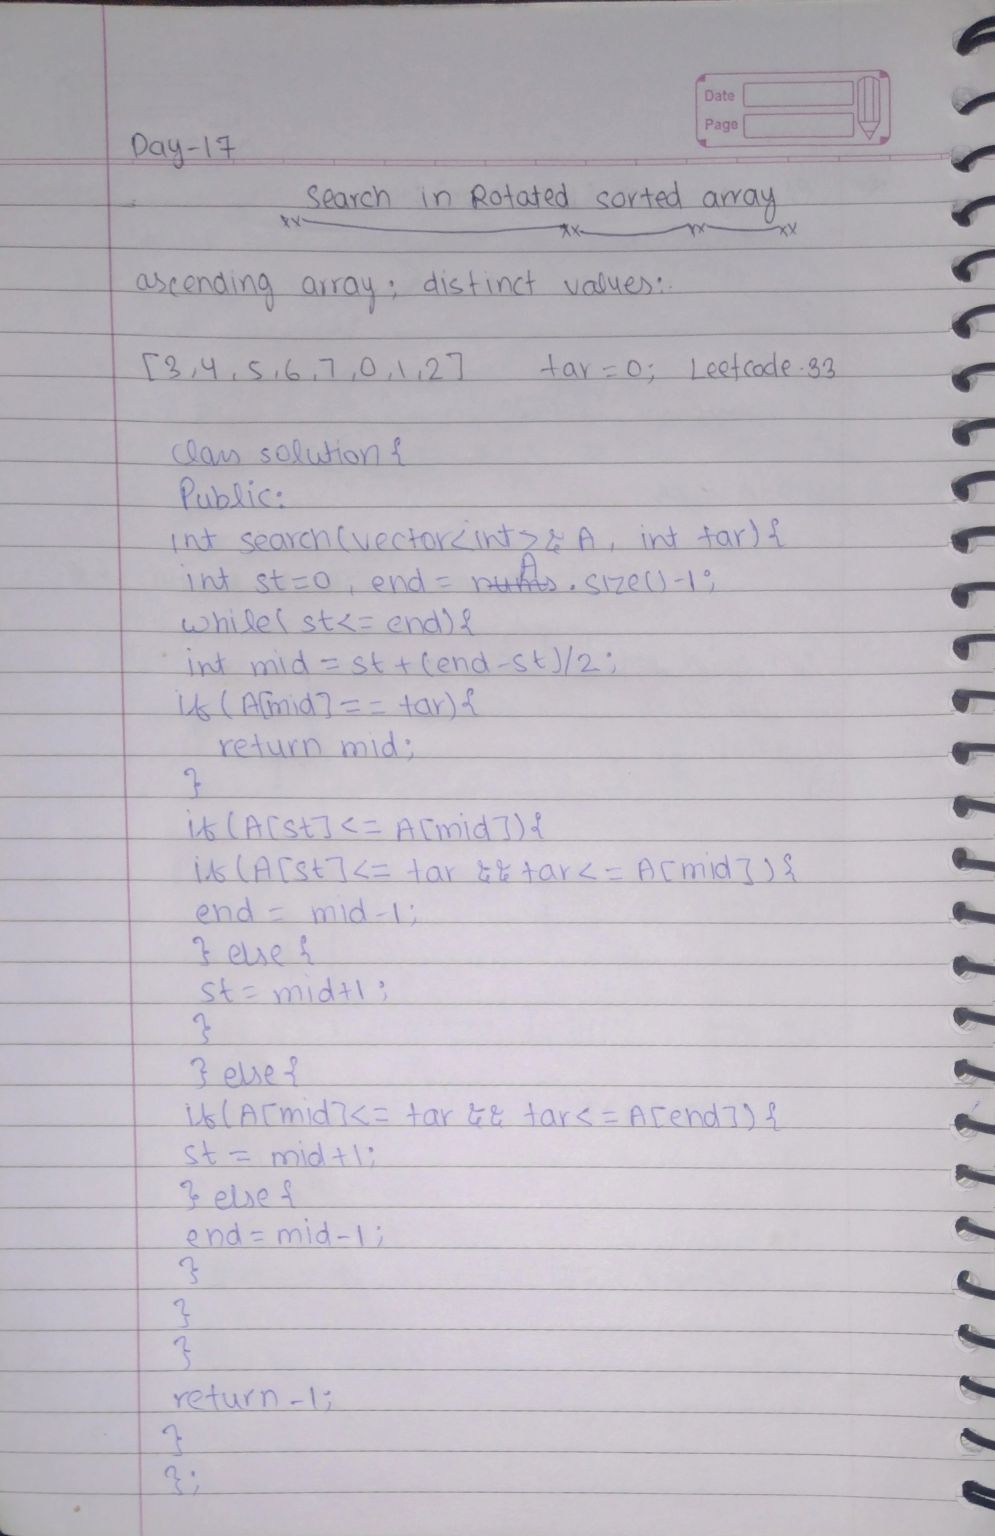 Date
Page
Day-17
Search in Rotated sorted array
ascending array; distinct values:
[3,4,5,6,7,0,1,2] tar=0; Leetcode-33
class solution{
Public:
int search(vector<int>& A, int tar){
int st=0, end = A.size()-1;
while( st<= end){
int mid = st+(end-st)/2;
if(A[mid]== tar){
return mid;
}
if(A[st]<= A[mid]){
if(A[st]<= tar && tar<= A[mid]){
end = mid-1;
} else {
st= mid+1;
}
} else {
if(A[mid]<= tar && tar<=A[end]){
st = mid+1;
} else {
end=mid-1;
}
}
}
return -1;
}
};